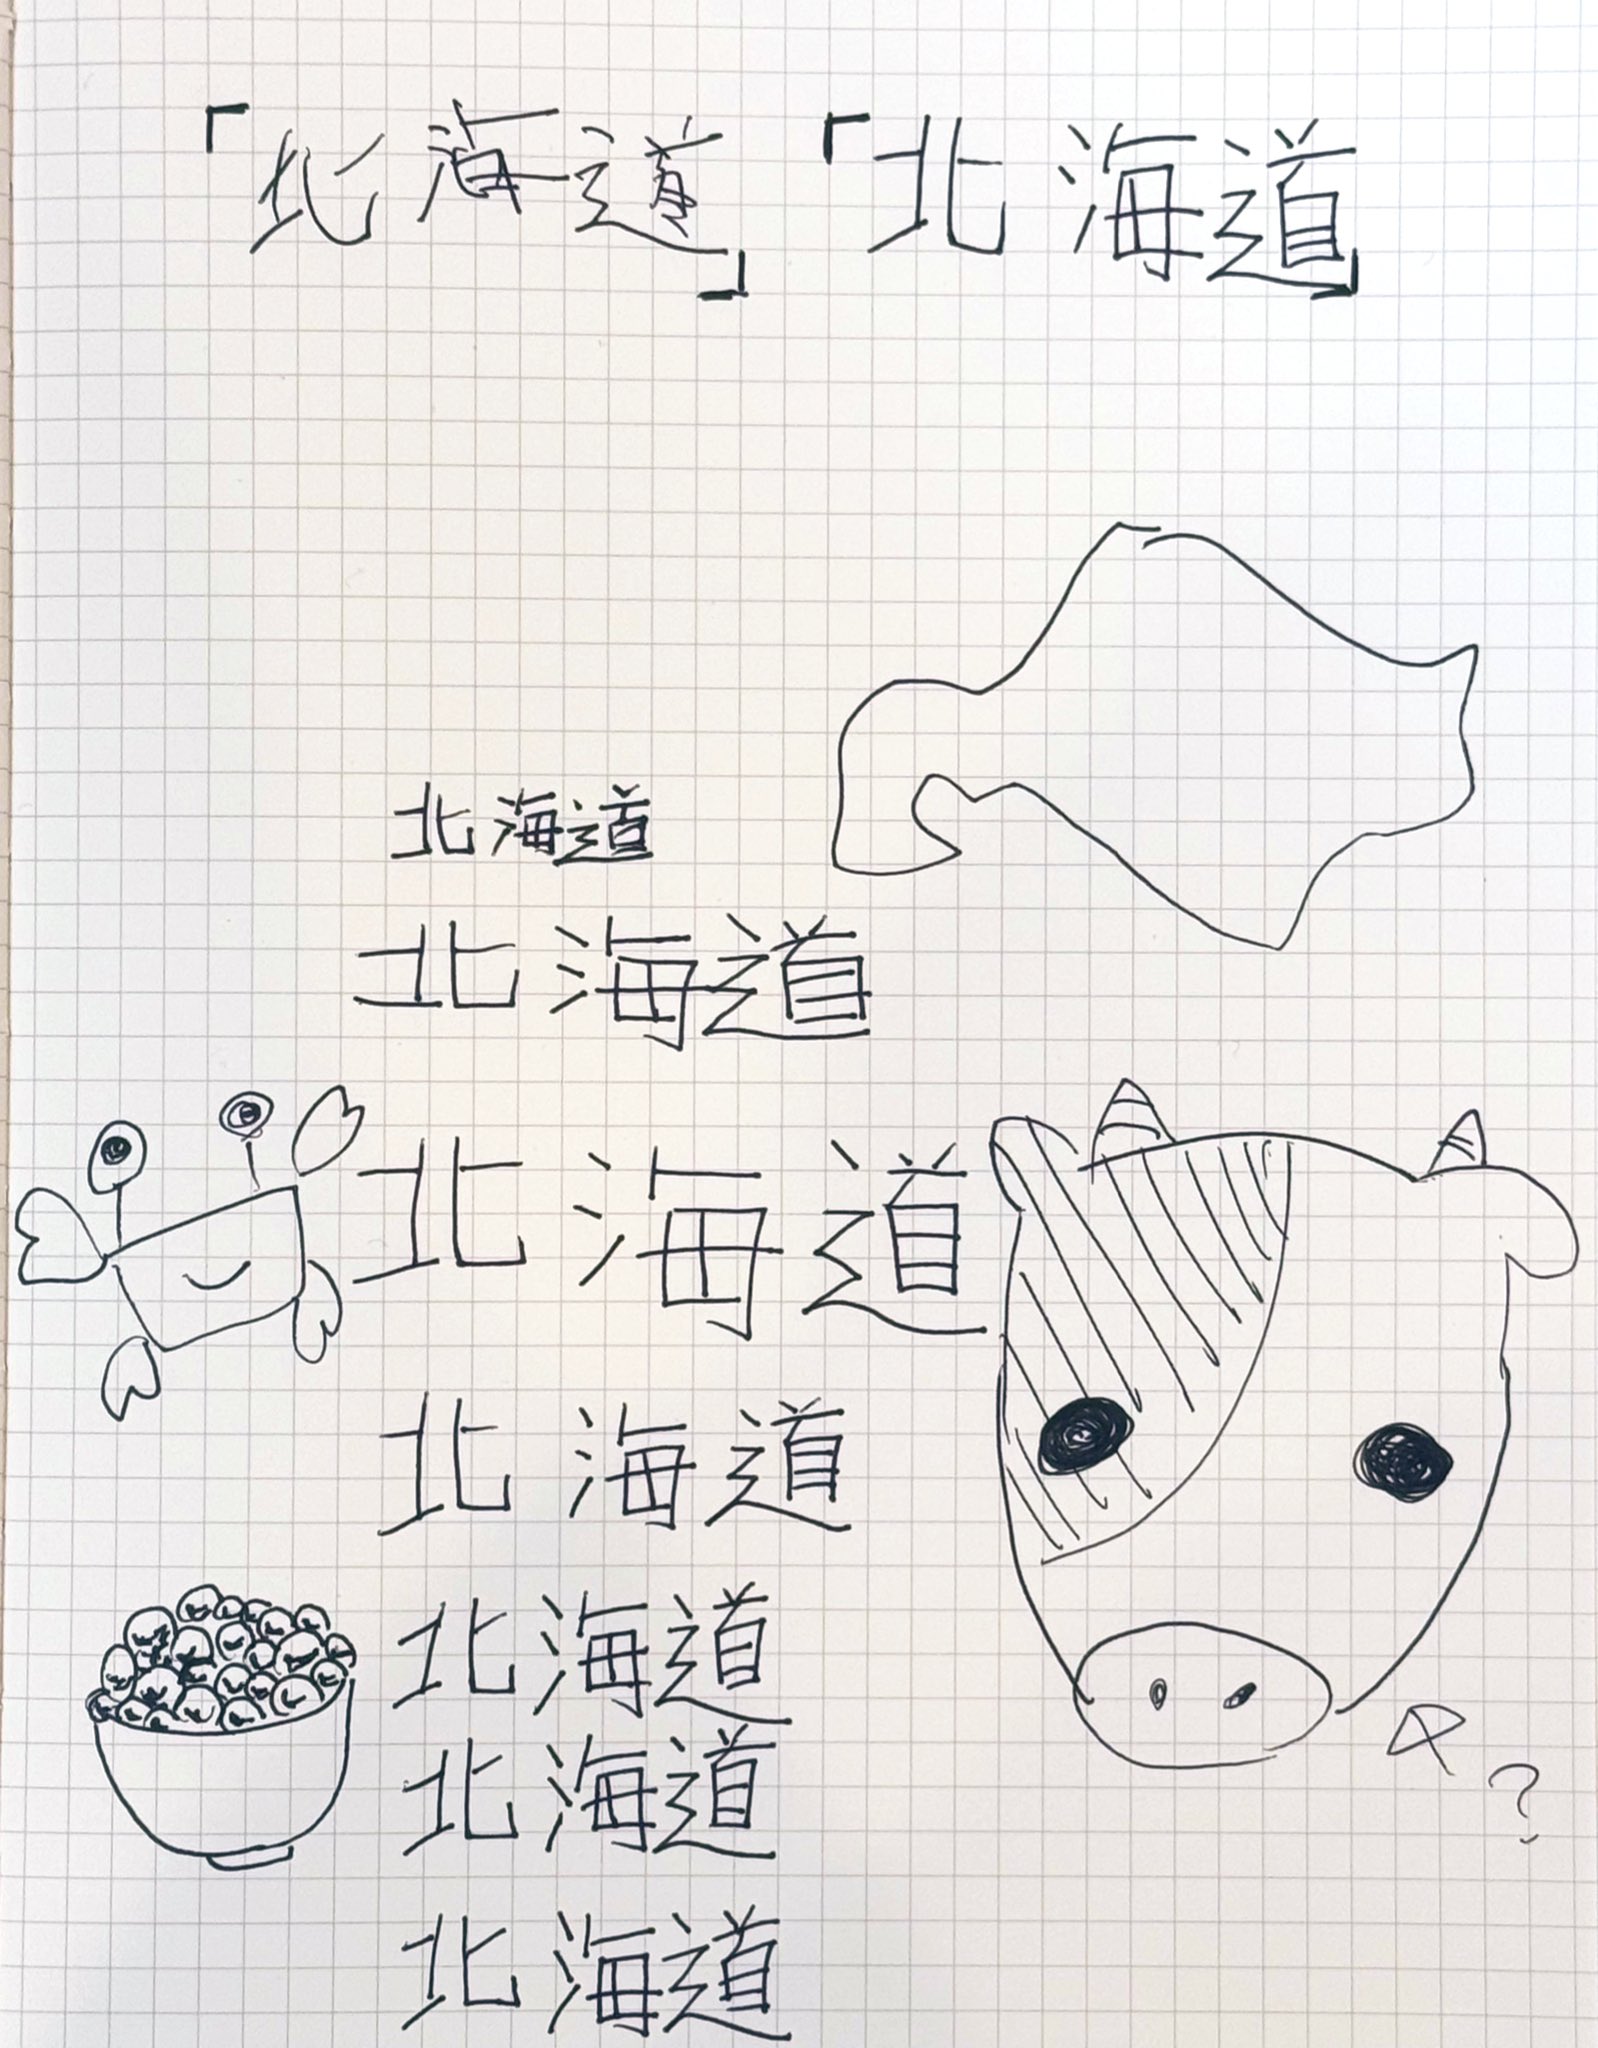 「北海道」「北海道」
北海道
北海道
北海道
北海道
北海道
北海道
北海道
?